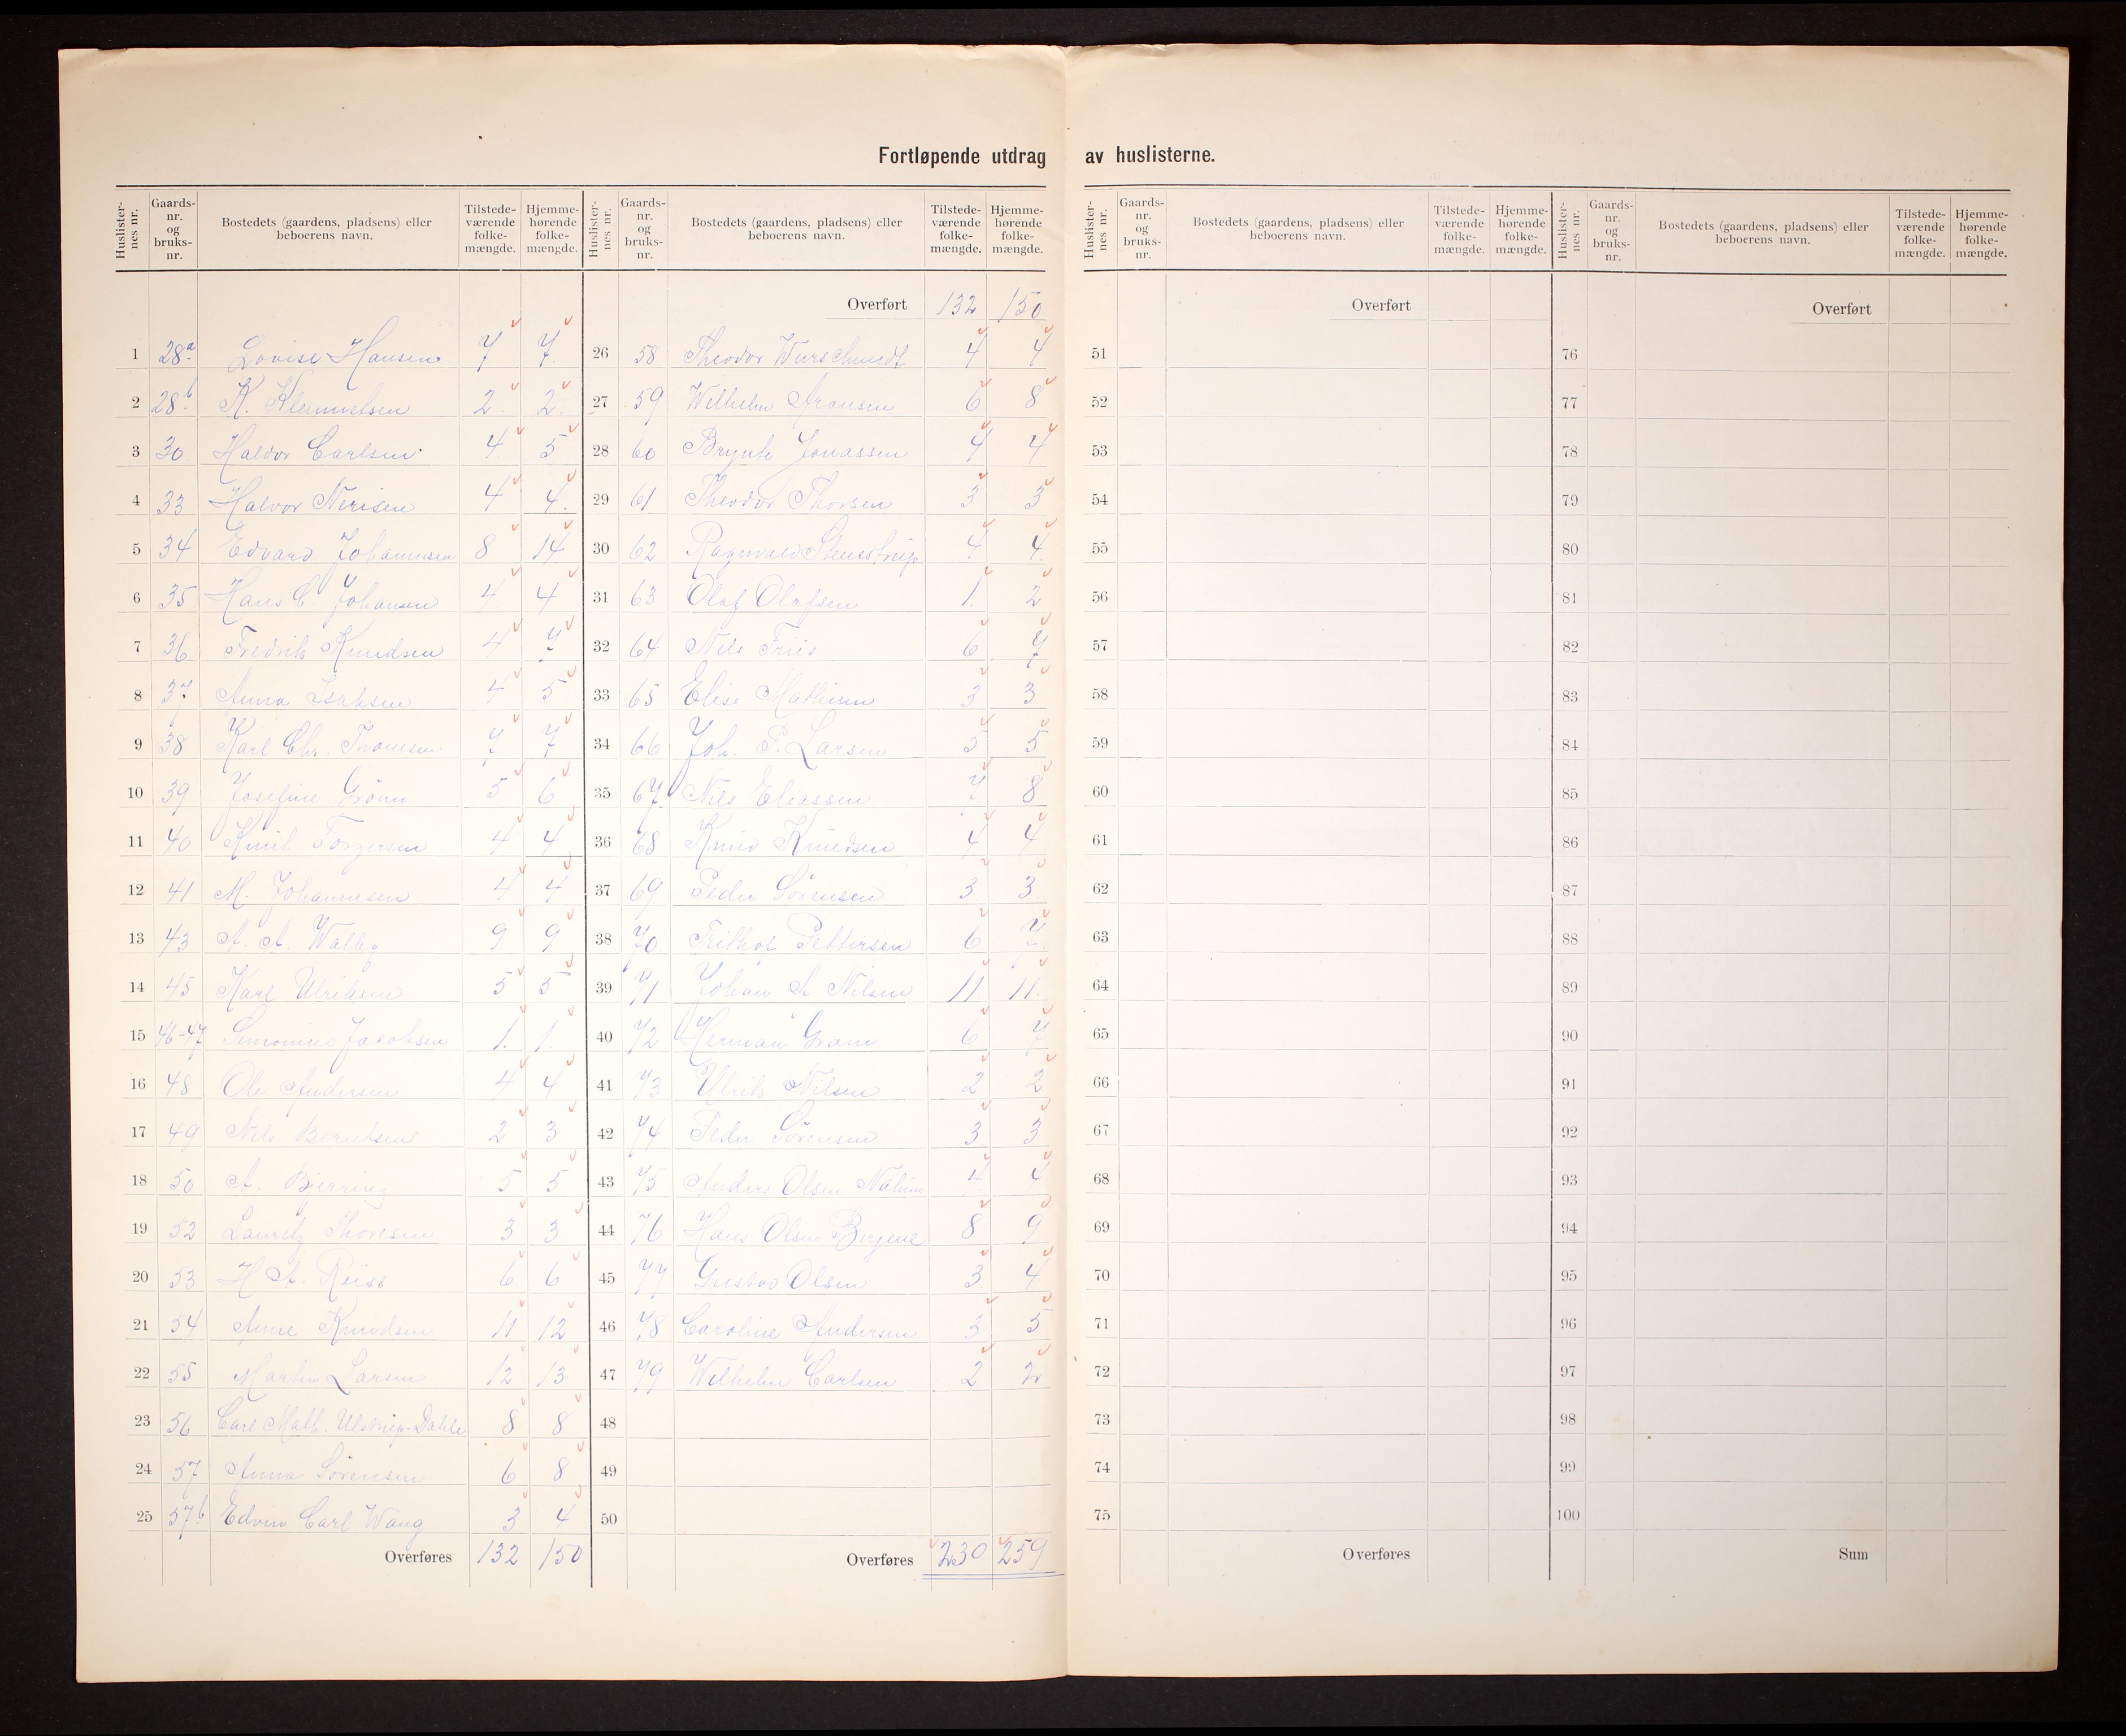 Fortløpende utdrag av huslisterne.
Huslister-nes nr. Gaards-nr. og bruks-nr. Bostedets (gaardens, pladsens) eller beboerens navn. Tilstede-værende folke-mængde. Hjemme-hørende folke-mængde.
1 28a Lovise Hansen 7 7
2 28b K. Klemmetsen 2 2
3 30 Haldor Carlsen 4 5
4 33 Halvor Nerisen 4 4
5 34 Edvard Johannesen 8 14
6 35 Hans C. Johansen 4 4
7 36 Fredrik Knudsen 4 7
8 37 Anna Isaksen 4 5
9 38 Karl Chr. Thomsen 7 7
10 39 Josefine 5 6
11 40 Emil Torgersen 4 4
12 41 M. Johannesen 4 4
13 43 A. A. Walby 9 9
14 45 Karl Ulriksen 5 5
15 46-47 Jacobsen 1. 1.
16 48 Ole Andersen 4 4
17 49 Nils Berntsen 2 3
18 50 A. Bjerring 5 5
19 52 Lauritz Thoresen 3 3
20 53 H. A. Reiss 6 6
21 54 Anne Knudsen 11 12
22 55 Marthin Larsen 12 13
23 56 Carl Math. Ulstrup-Dahle 8 8
24 57 Anna Sörensen 6 8
25 57b Edvin Carl Wang 3 4
Overføres 132 150
Huslister-nes nr. Gaards-nr. og bruks-nr. Bostedets (gaardens, pladsens) eller beboerens navn. Tilstede-værende folke-mængde. Hjemme-hørende folke-mængde.
Overført 132 150
26 58 Theodor Wurschmidt 4 4
27 59 Wilhelm Fransen 6 8
28 60 Brynte Jonassen 4 4
29 61 Theodor Thorsen 3 3
30 62 Ragnvald Steenstrup 4 4
31 63 Olaf Olafsen 1. 2
32 64 Nils Friis 6 7
33 65 Elise Mathisen 3 3
34 66 Joh. P. Larsen 5 5
35 67 Nils Eliassen 7 8
36 68 Knud Knudsen 4 4
37 69 Peder Sörensen 3 3
38 70 Frithof Pettersen 6 7
39 71 Johan A. Nilsen 11 11.
40 72 Herman Gram 6 7
41 73 Ulrik Nilsen 2 2
42 74 Peder Sörensen 3 3
43 75 Anders Olsen 4 4
44 76 Hans Olsen Bergene 8 9
45 77 Gustav Olsen 3 4
46 78 Caroline Andersen 3 5
47 79 Wilhelm Carlsen 2 2
48
49
50
Overføres 230 259
Huslister-nes nr. Gaards-nr. og bruks-nr. Bostedets (gaardens, pladsens) eller beboerens navn. Tilstede-værende folke-mængde. Hjemme-hørende folke-mængde.
Overført
51
52
53
54
55
56
57
58
59
60
61
62
63
64
65
66
67
68
69
70
71
72
73
74
75
Overføres
Huslister-nes nr. Gaards-nr. og bruks-nr. Bostedets (gaardens, pladsens) eller beboerens navn. Tilstede-værende folke-mængde. Hjemme-hørende folke-mængde.
Overført
76
77
78
79
80
81
82
83
84
85
86
87
88
89
90
91
92
93
94
95
96
97
98
99
100
Sum